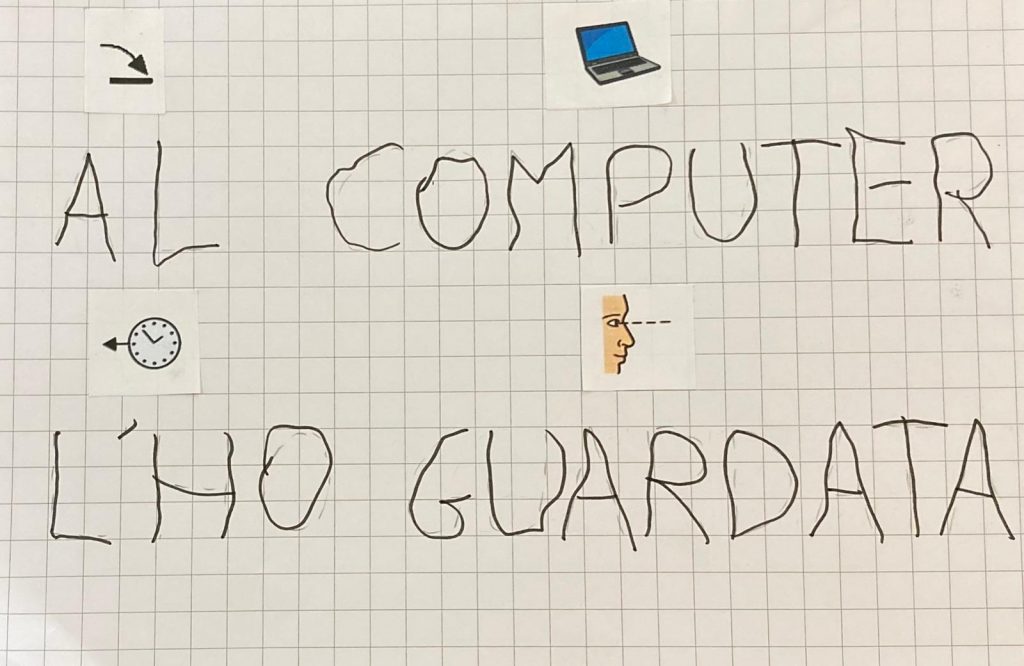 AL COMPUTER
L'HO GUARDATA